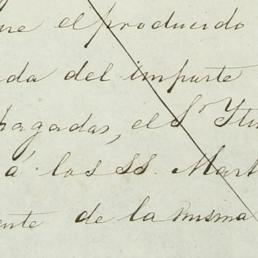 ue el producido
da del importe
pagadas, el Sʳ Ytu
á los SS. Mart
ente de la misma